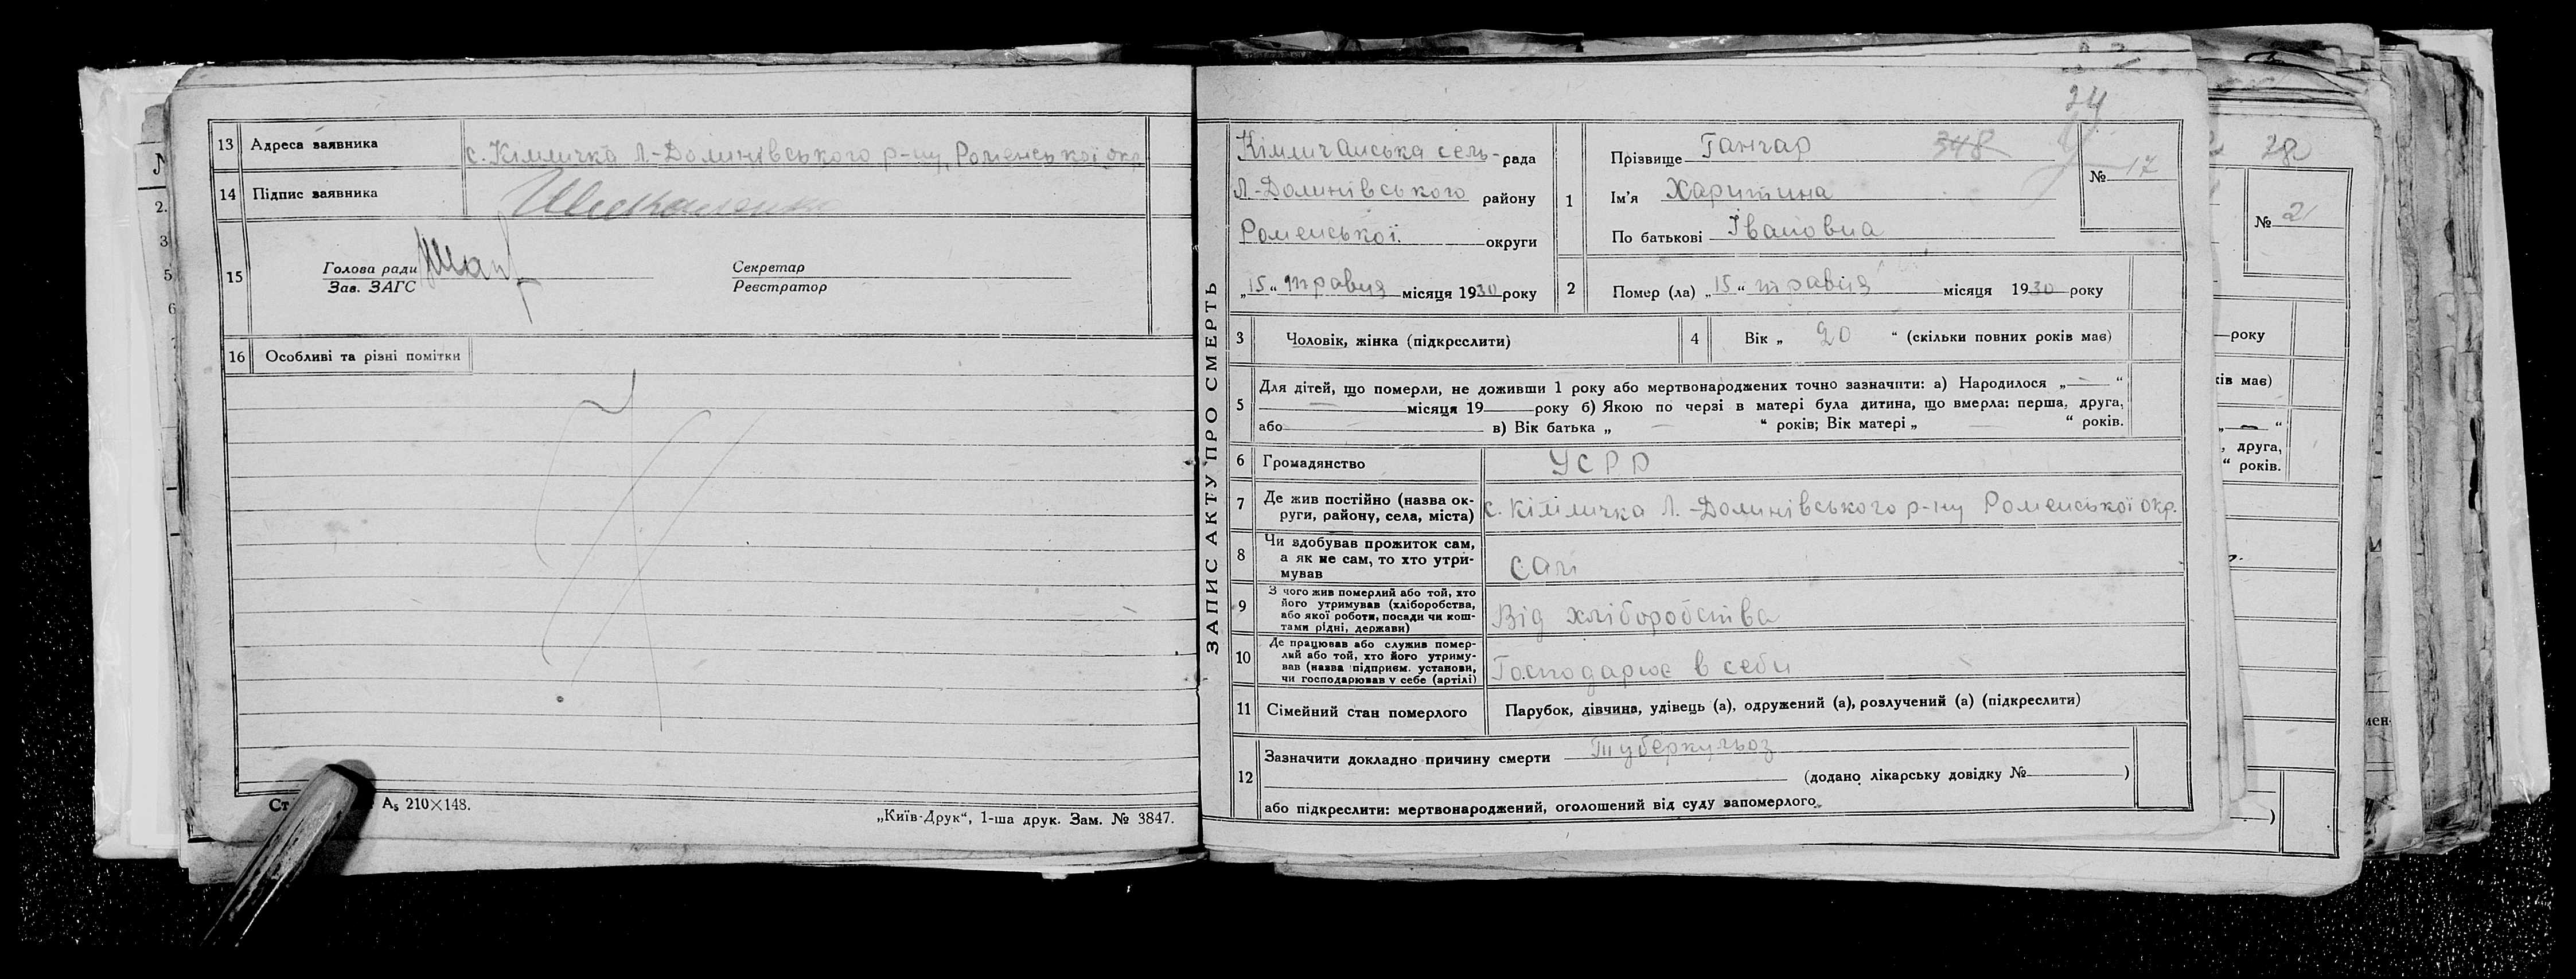 13 Адреса заявника с. Кімличка Л.-Долинівського р-ну, Роменської окр.
14 Підпис заявника
15 Голова ради Секретар
Зав. ЗАГС Реєстратор
16 Особливі та різні помітки
A₅ 210×148.
„Київ-Друк“, 1-ша друк. Зам. № 3847.
24
ЗАПИС АКТУ ПРО СМЕРТЬ
Кімличанська сель-рада
Л.-Долинівського району
Роменської округи
„15“ травня місяця 1930 року
1 Прізвище Гангар 348
Ім'я Харитина
По батькові Івановна
№ 17
2 Помер (ла) „15“ травня місяця 1930 року
3 Чоловік, жінка (підкреслити)
4 Вік „ 20 “ (скільки повних років має)
5 Для дітей, що померли, не доживши 1 року або мертвонароджених точно зазначити: а) Народилося „—“
— місяця 19 року б) Якою по черзі в матері була дитина, що вмерла: перша, друга,
або в) Вік батька „ — “ років; Вік матері „ — “ років.
6 Громадянство УСРР
7 Де жив постійно (назва ок-
руги, району, села, міста) с. Кімличка Л.-Долинівського р-ну Роменської окр.
8 Чи здобував прожиток сам,
а як не сам, то хто утри-
мував сам
9 З чого жив померлий або той, хто
його утримував (хліборобства,
або якої роботи, посади чи кош-
тами рідні, держави) Від хліборобства
10 Де працював або служив помер-
лий або той, хто його утриму-
вав (назва підприєм. установи,
чи господарював у себе (артілі) Господарює в себи
11 Сімейний стан померлого Парубок, дівчина, удівець (а), одружений (а), розлучений (а) (підкреслити)
12 Зазначити докладно причину смерти Туберкульоз
(додано лікарську довідку № )
або підкреслити: мертвонароджений, оголошений від суду запомерлого.
28
№ 21
року
ків має)
„—“
, друга,
“ років.
)